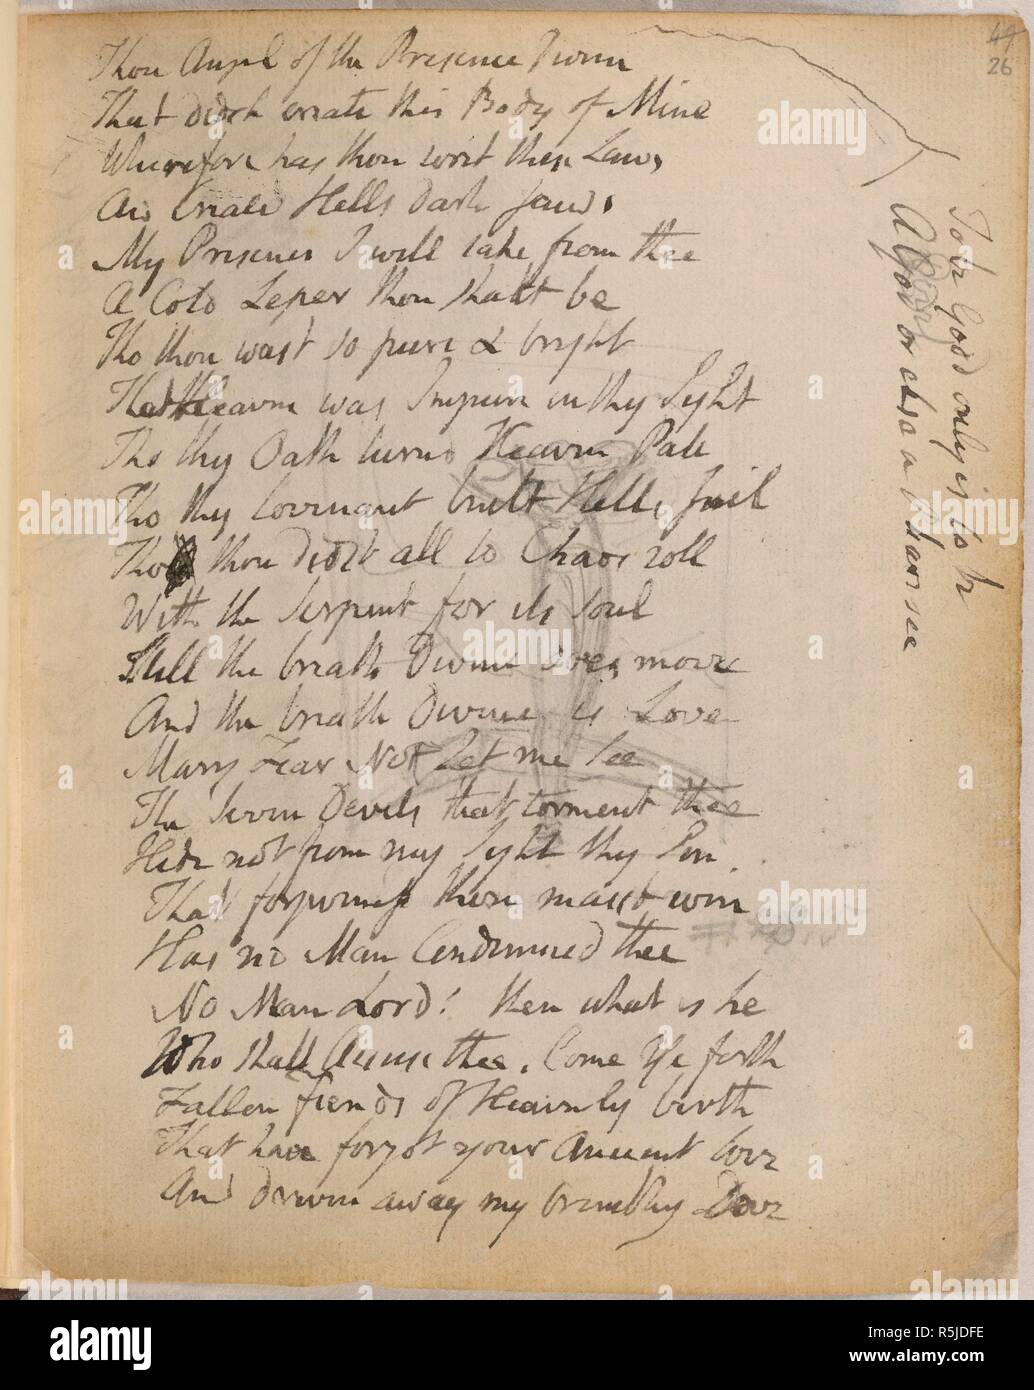 49
26
Thou Angel of the Presence Divine
That didst create this Body of Mine
Wherefore has thou writ these Laws
And Created Hells dark jaws
My Presence I will take from thee
A Cold Leper thou shalt be
Tho thou wast so pure & bright
That Heaven was Impure in thy Sight
Tho thy Oath turnd Heaven Pale
Tho thy Covenant built Hells Jail
Tho thou didst all to Chaos roll
With the Serpent for its soul
Still the breath Divine does move
And the breath Divine is Love
Mary Fear Not Let me See
The Seven Devils that torment thee
Hide not from my Sight thy Sin
That forgiveness thou maist win
Has no Man Condemned thee
No Man Lord! then what is he
Who shall Accuse thee. Come Ye forth
Fallen fiends of Heavenly birth
That have forgot your Ancient love
And driven away my trembling Dove
To be Good only is to be
A God or else a Pharisee
alamy
alamy
Image ID: R5JDFE
www.alamy.com